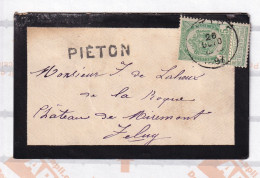 PIÉTON
26
Monsieur J de Lahieu
de la Roque
Château de Miremont
Feluy